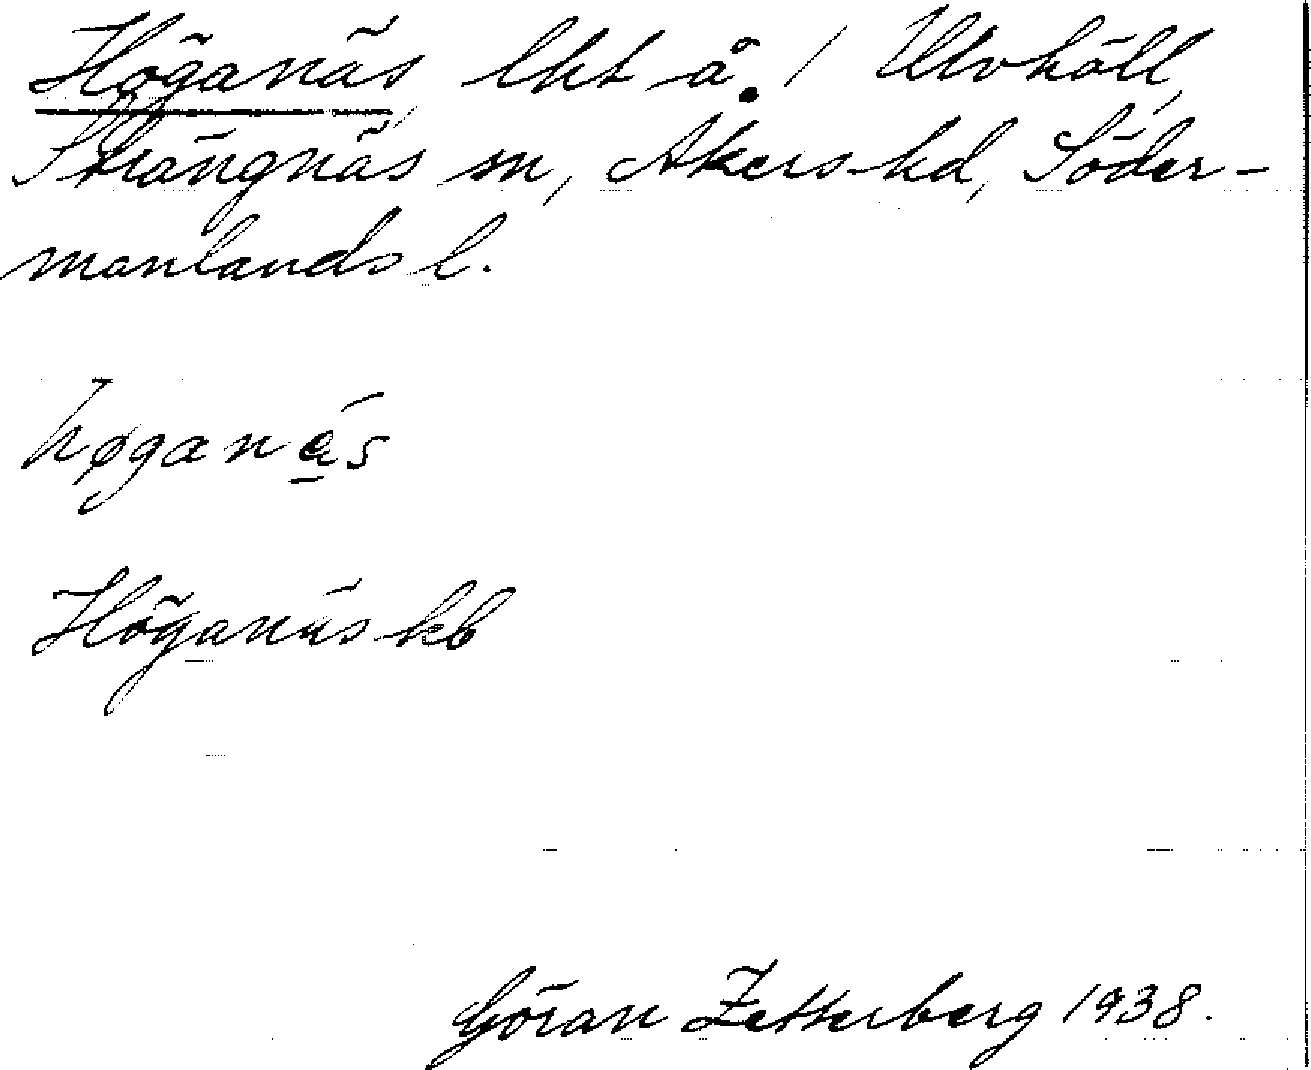 Höganäs, lht å. / Ulvhäll,
Strängnäs sn, Åkers hd, Söder-
manlands l.
høganäs
Höganäs kb
Göran Zetterberg 1938.